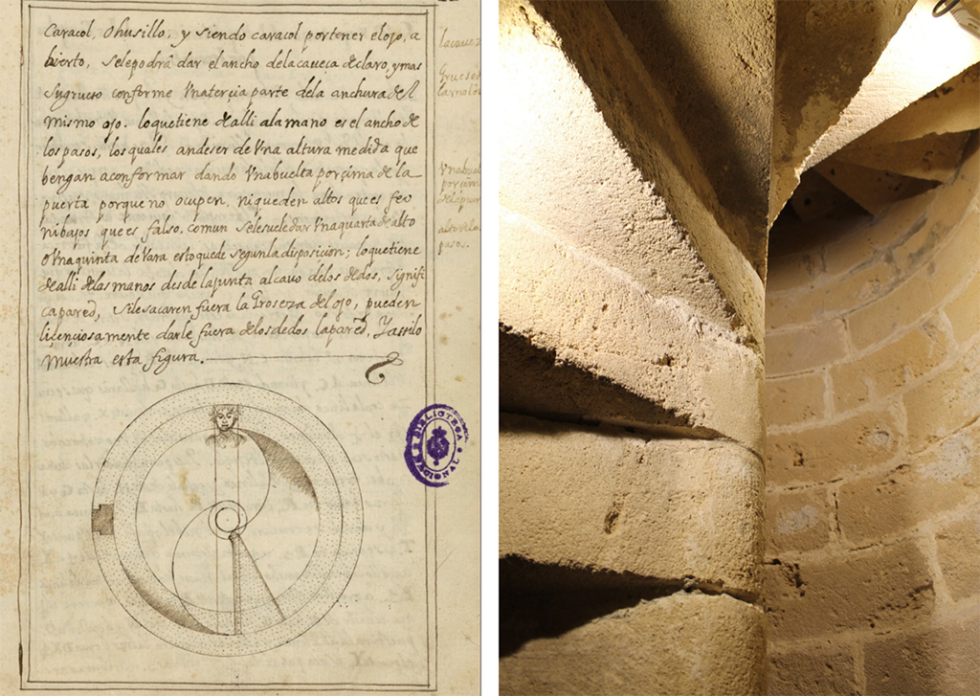 Caracol, Ohusillo, y siendo caracol portener elojo, a
bierto, selepodrà dar el ancho delacaveça declaro, ymas
sugrueso conforme Vnaterçia parte dela anchuradel
mismo ojo. loquetiene dealli alamano es el ancho de
los pasos, los quales andeser de Vna altura medida que
bengan aconformar dando Vnabuelta porçima de la
puerta porque no ocupen, niqueden altos que es feo
nibajos que es falso, comun selesueledar Vnaquarta de alto
o Vnaquinta de Vara estoquede segunla disposicion; loquetiene
dealli delasmanos desde lajunta alcavo delos dedos, signifi
capared, silesacaren fuera la Groseza del ojo, pueden
liçençiosamente darle fuera delosdedos lapared, Yassilo
muestra esta figura.
lacaveç
Grueso
Vnabuel
porçim
delapuer
altodelo
paso.
BIBLIOTECA
NACIONAL